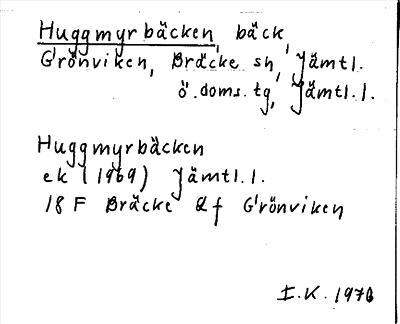 Huggmyrbäcken, bäck,
Grönviken, Bräcke sn, Jämtl.
ö. doms. tg, Jämtl. l.
Huggmyrbäcken
ek (1969) Jämtl. l.
18 F Bräcke d f Grönviken
I.K. 1970